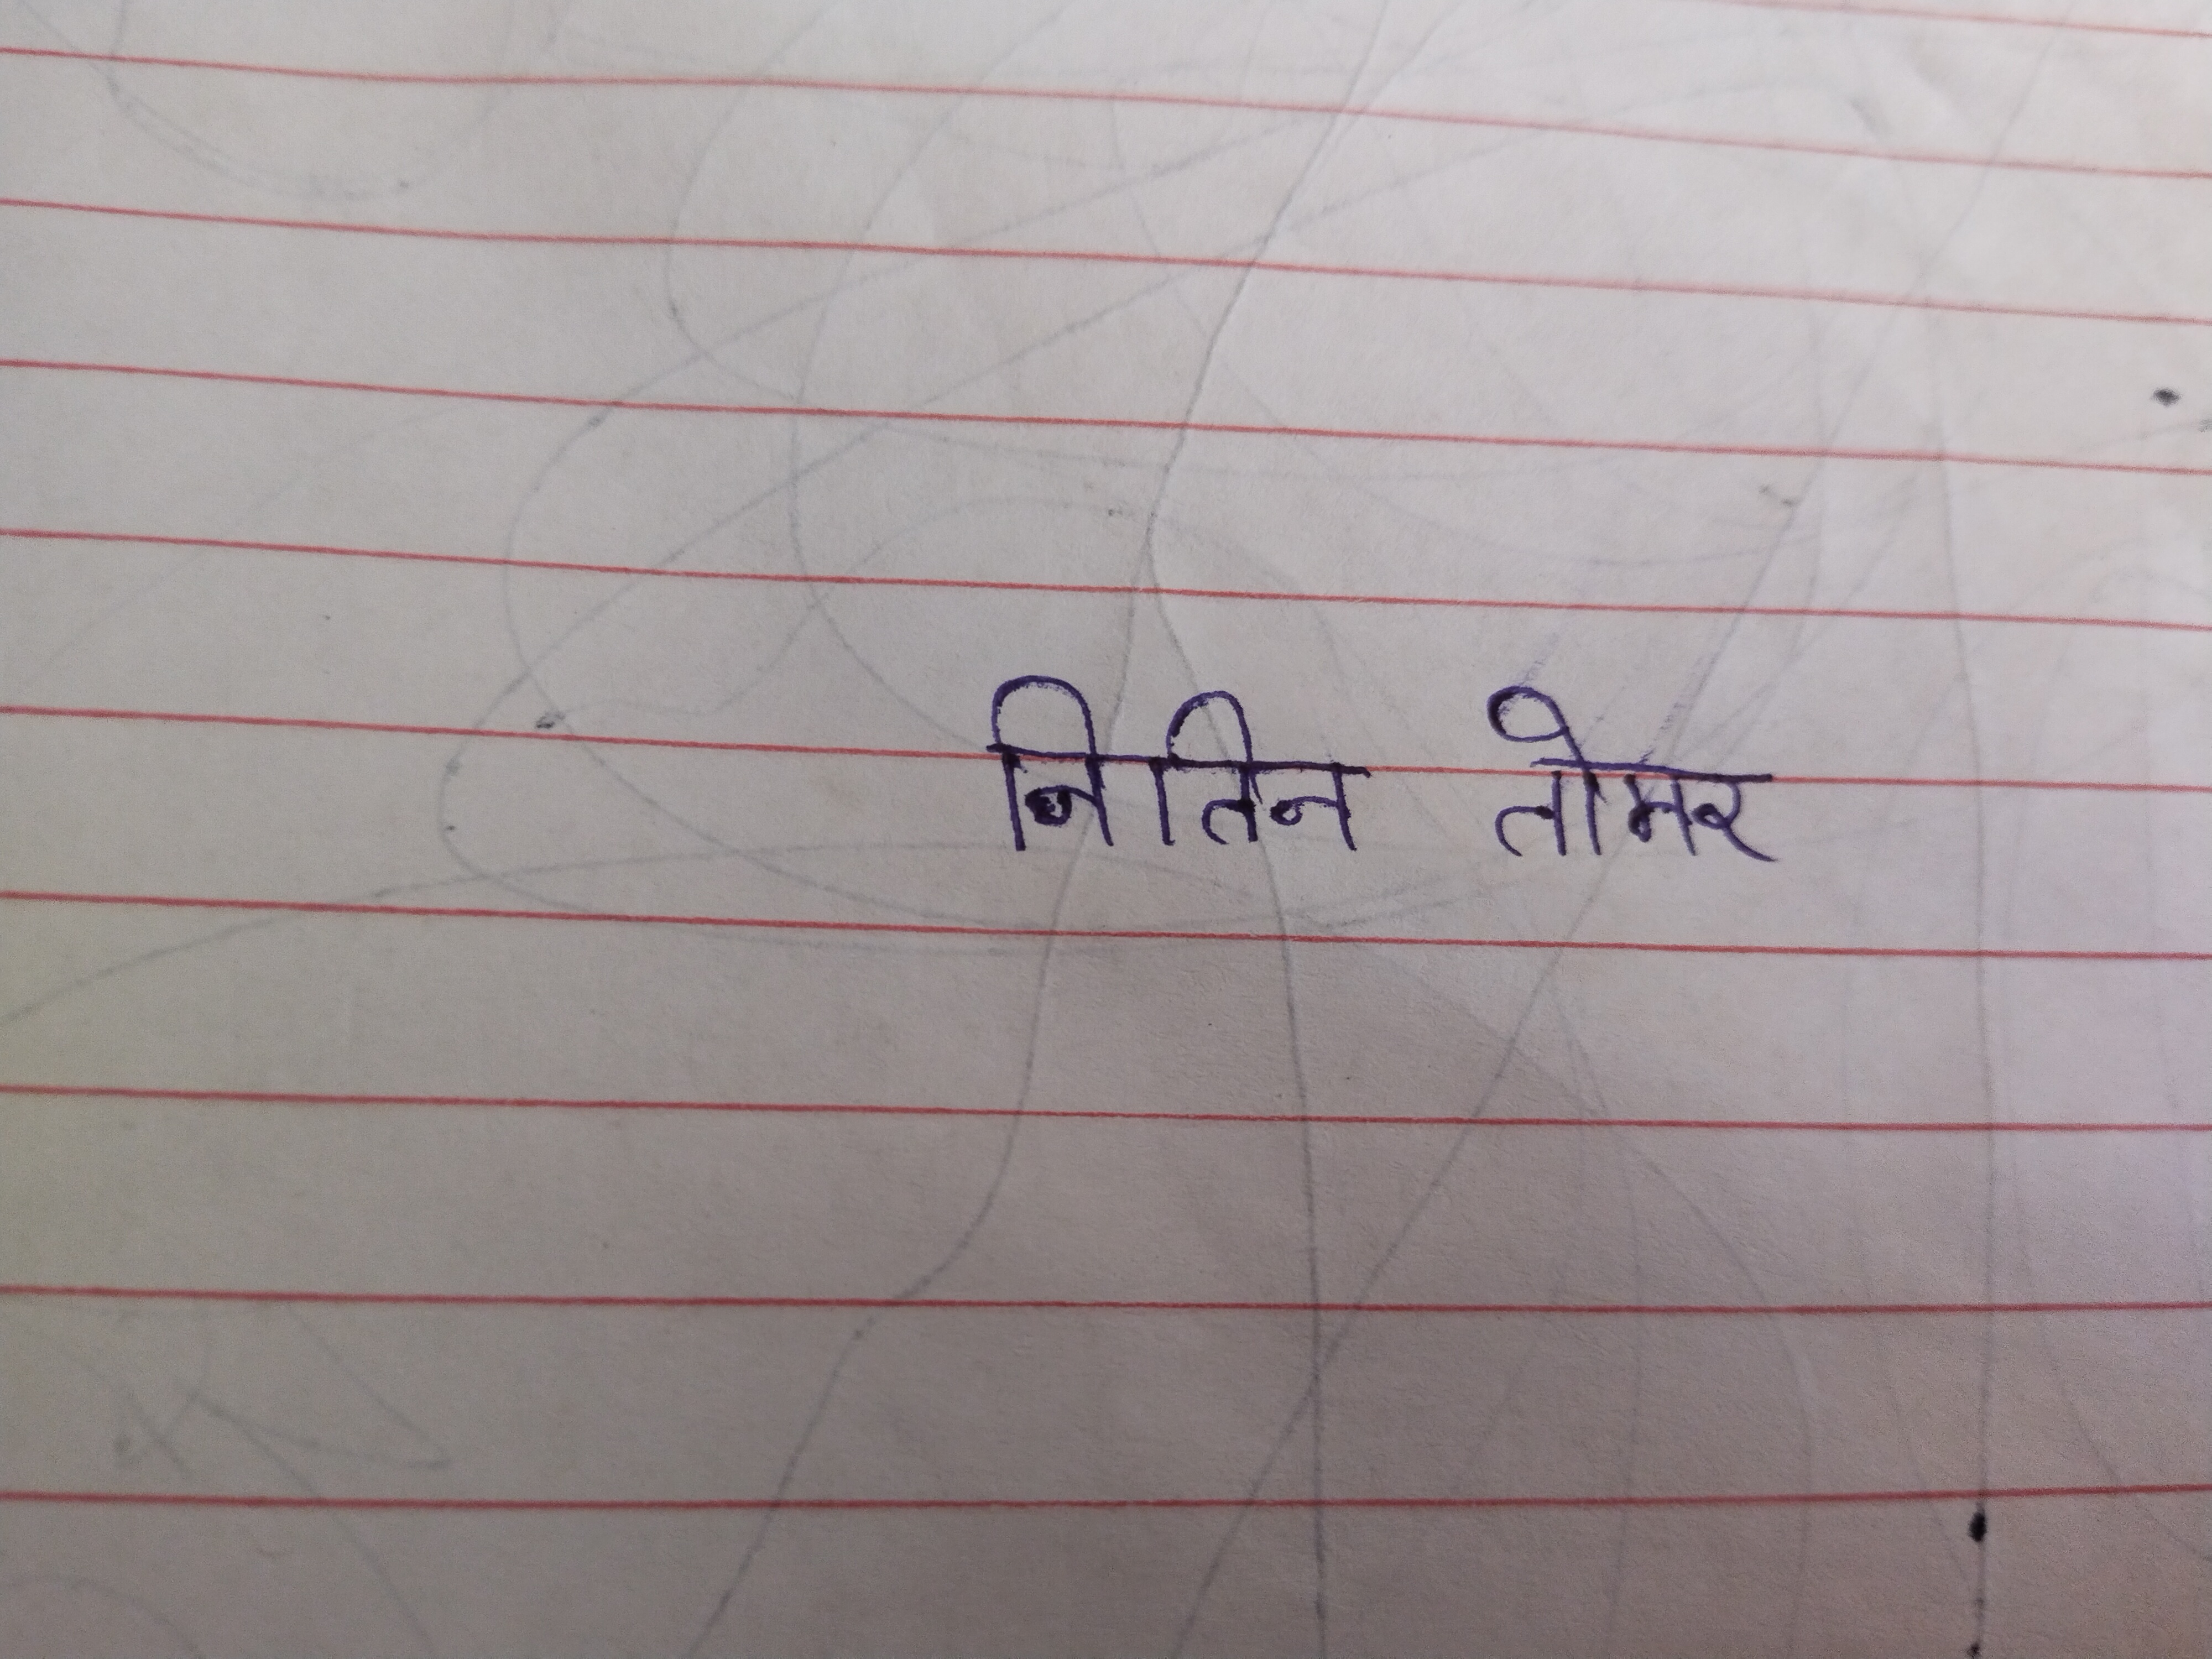 नितिन तोमर